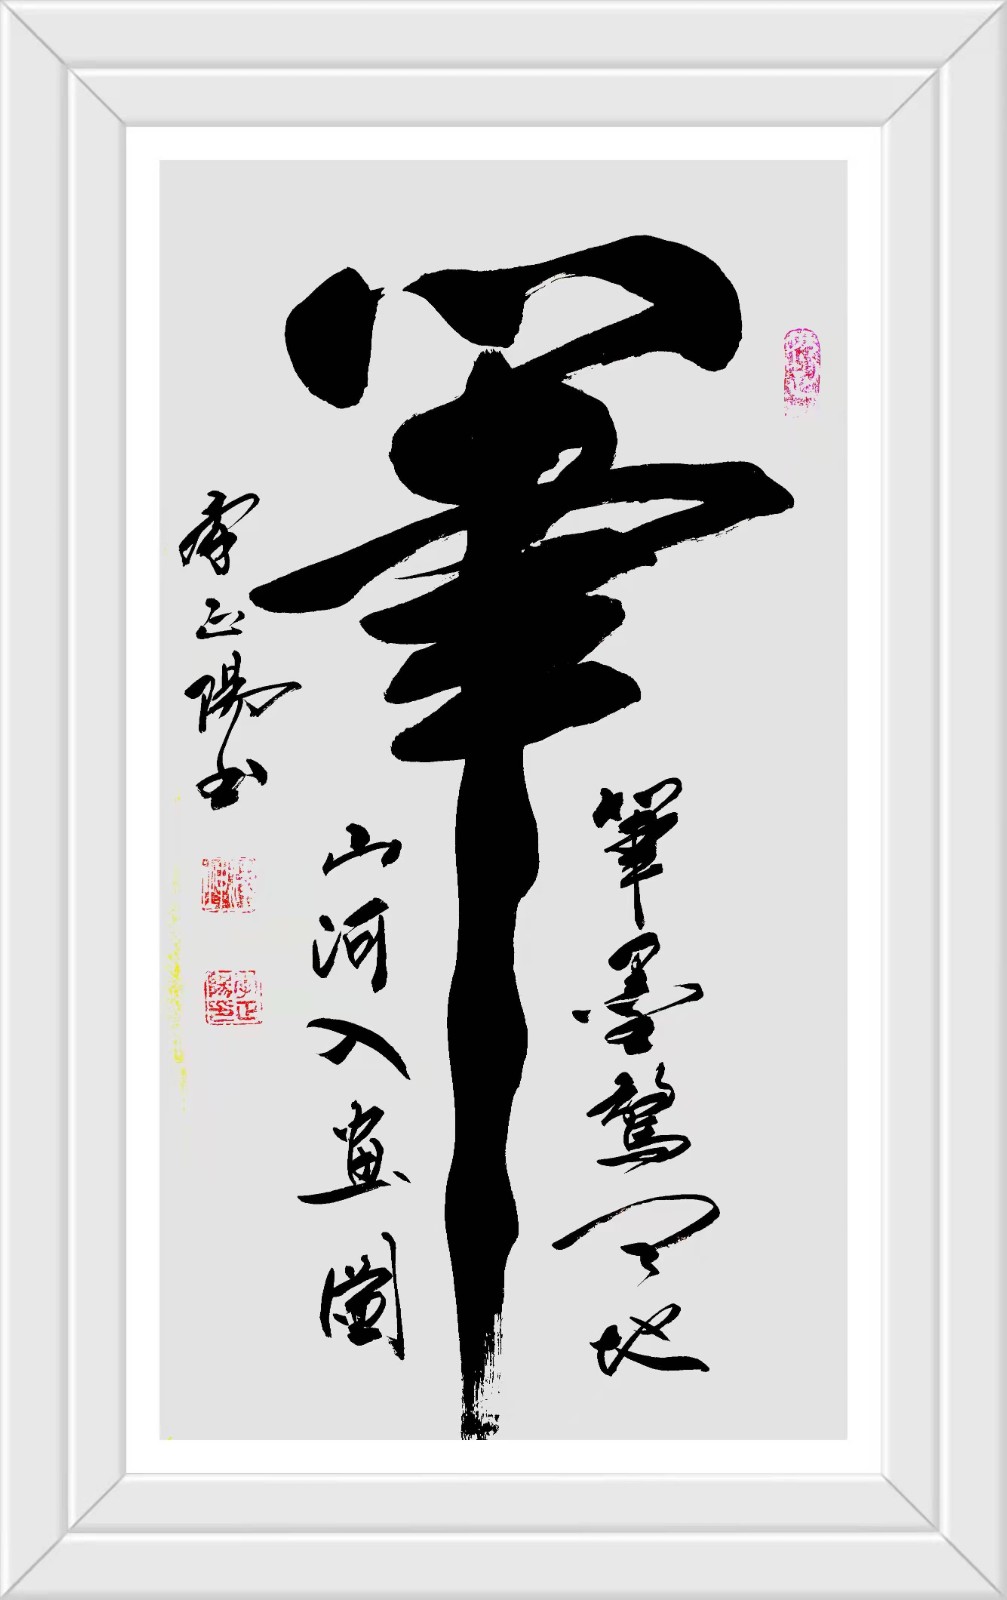 筆
筆墨驚天地
山河入畫圖
李正陽書